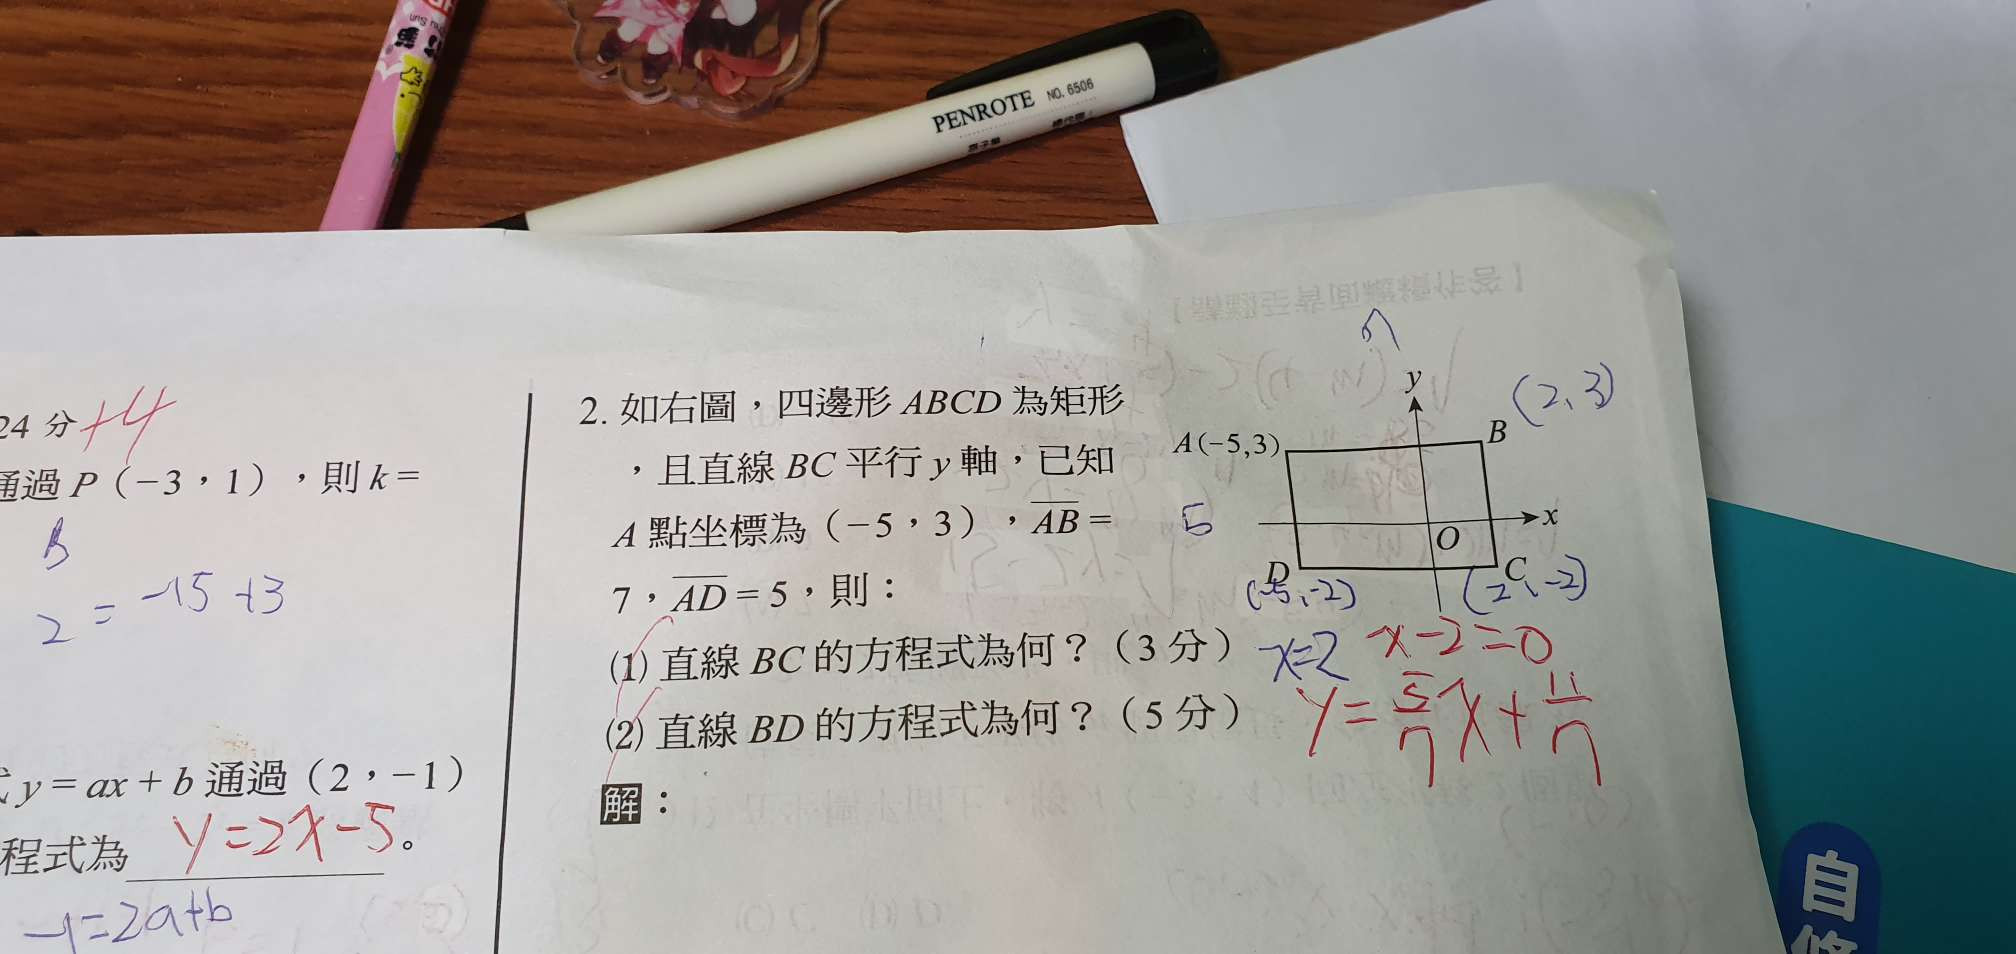 PENROTE NO. 6506
24 分 +4
通過 P（-3，1），則 k =
2 = -15 +3
式 y = ax + b 通過（2，-1）
程式為 y=2x-5。
-1=2a+b
2. 如右圖，四邊形 ABCD 為矩形
，且直線 BC 平行 y 軸，已知
A 點坐標為（-5，3），AB =
7，AD = 5，則：
(1) 直線 BC 的方程式為何？（3 分） x=2 x-2=0
(2) 直線 BD 的方程式為何？（5 分） y=5/7x+11/7
解：
y
A(-5,3)
B (2、3)
5
x
O
D (-5、-2)
C (2、-2)
自
修